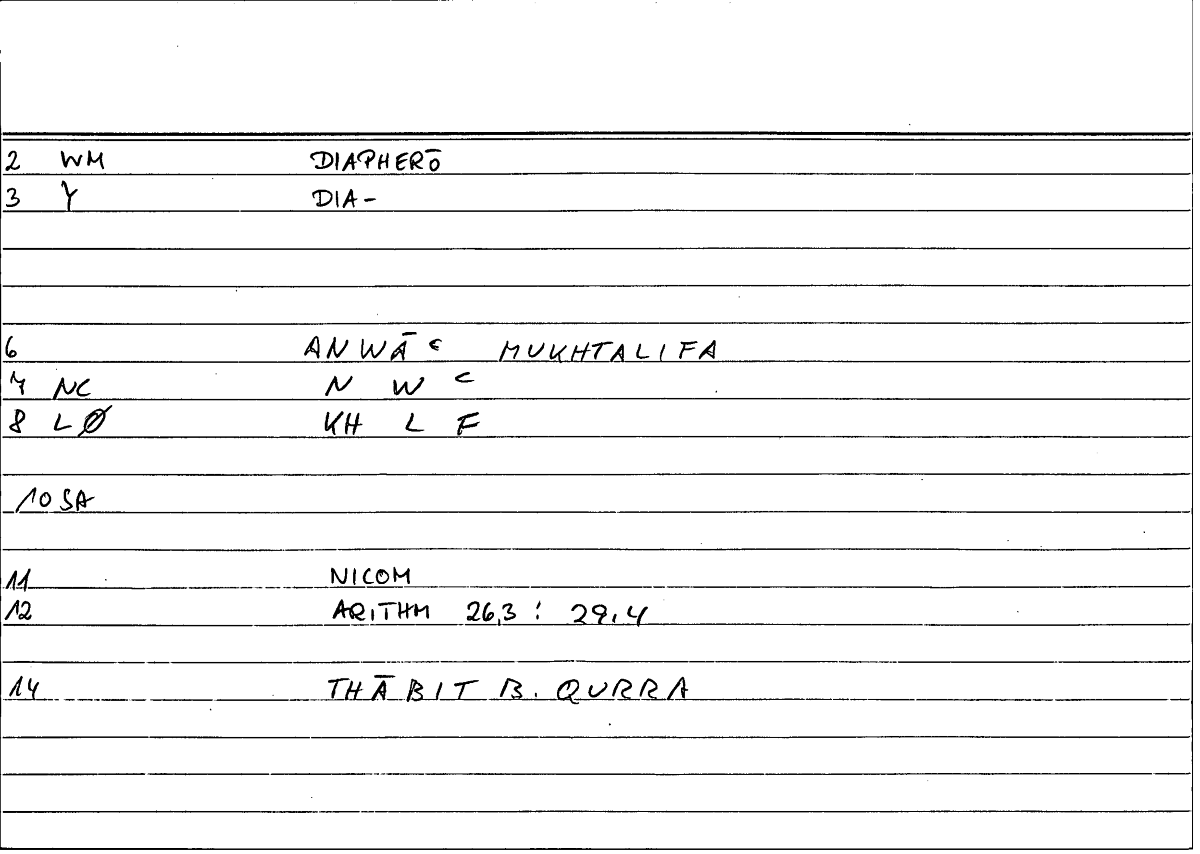 2 WM DIAPHERŌ
3 Y DIA-
6 ANWĀʿ MUKHTALIFA
7 NC N W ʿ
8 LØ KH L F
10 SA
11 NICOM
12 ARITHM 26,3 : 29,4
14 THĀBIT B. QURRA